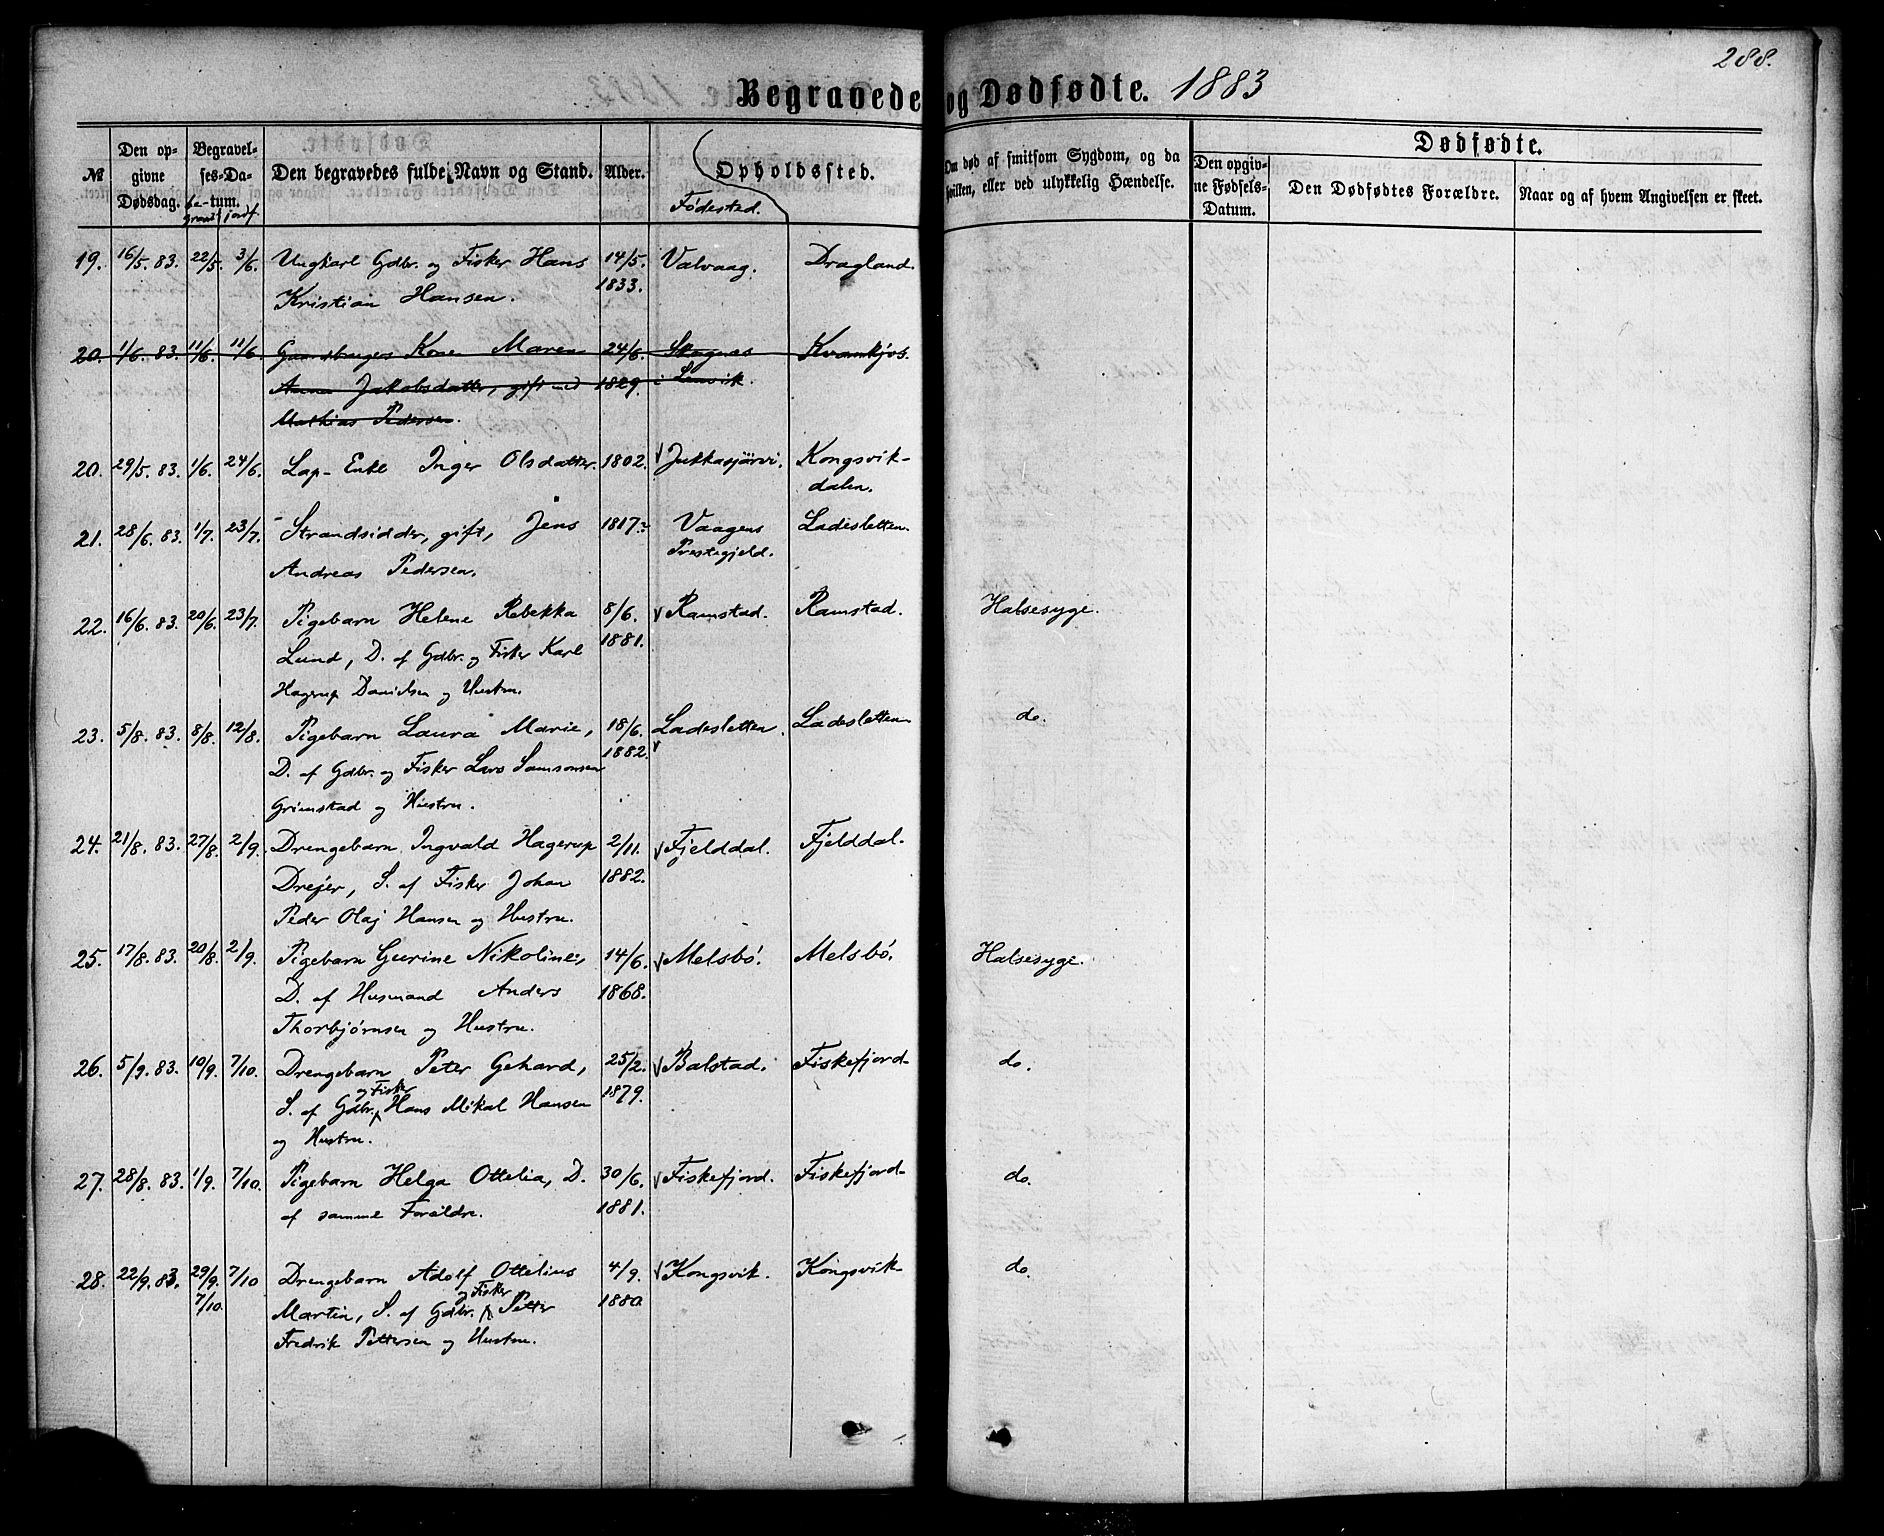 288.
Begravede og Dødfødte. 1883
№
Den opgivne Dødsdag.
Begravelses-Datum.
begravet
jordf.
Den begravedes fulde Navn og Stand.
Alder.
Opholdssted.
Fødested.
Om død af smitsom Sygdom, og da hvilken, eller ved ulykkelig Hændelse.
Dødfødte.
Den opgivne Fødsels-Datum.
Den Dødfødtes Forældre.
Naar og af hvem Angivelsen er skeet.
19. 16/5. 83. 22/5. 3/6. Ungkarl Gdbr. og Fisker Hans 14/5. Valvaag. Dragland.
Kristian Hansen. 1833.
20. 1/6. 83. 11/6. 11/6. Gaardbruger Kone Maren 24/6. Skognes Kvamkjos.
Anna Jakobsdatter, gift med 1829. i Lenvik.
Mathias Pedersen.
20. 29/5. 83. 1/6. 24/6. Lap-Enke Inger Olsdatter. 1802. Jukkasjärvi. Kongsvik-
dalen.
21. 28/6. 83. 1/7. 23/7. Strandsidder, gift, Jens 1817. Vaagens Ladesletten.
Andreas Pedersen. Prestegjeld.
22. 16/6. 83. 20/6. 23/7. Pigebarn Helene Rebekka 8/6. Ramstad. Ramstad. Halsesyge.
Lund, D. af Gdbr. og Fisker Karl 1881.
Hagerup Danielsen og Hustru.
23. 5/8. 83. 8/8. 12/8. Pigebarn Laura Marie, 18/6. Ladesletten. Ladesletten. do.
D. af Gdbr. og Fisker Lars Samsonsen 1882.
Grimstad og Hustru.
24. 21/8. 83. 27/8. 2/9. Drengebarn Ingvald Hagerup 2/11. Fjelddal. Fjelddal.
Drejer, S. af Fisker Johan 1882.
Peder Olaj Hansen og Hustru.
25. 17/8. 83. 20/8. 2/9. Pigebarn Gurine Nikoline, 14/6. Melsbö. Melsbö. Halsesyge.
D. af Husmand Anders 1868.
Thorbjørnsen og Hustru.
26. 5/9. 83. 10/9. 7/10. Drengebarn Peter Gehard, 25/2. Balstad. Fiskefjord. do.
S. af Gdbr. og Fisker Hans Mikal Hansen 1879.
og Hustru.
27. 28/8. 83. 1/9. 7/10. Pigebarn Helga Ottelia, D. 30/6. Fiskefjord. Fiskefjord. do.
af samme Forældre. 1881.
28. 22/9. 83. 29/9. 7/10 Drengebarn Adolf Ottelius 4/9. Kongsvik. Kongsvik. do.
7/10. Martin, S. af Gdbr. og Fisker Petter 1880.
Fredrik Pettersen og Hustru.